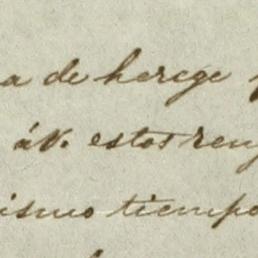 a de herege
á V. estos reng
ismo tiempo